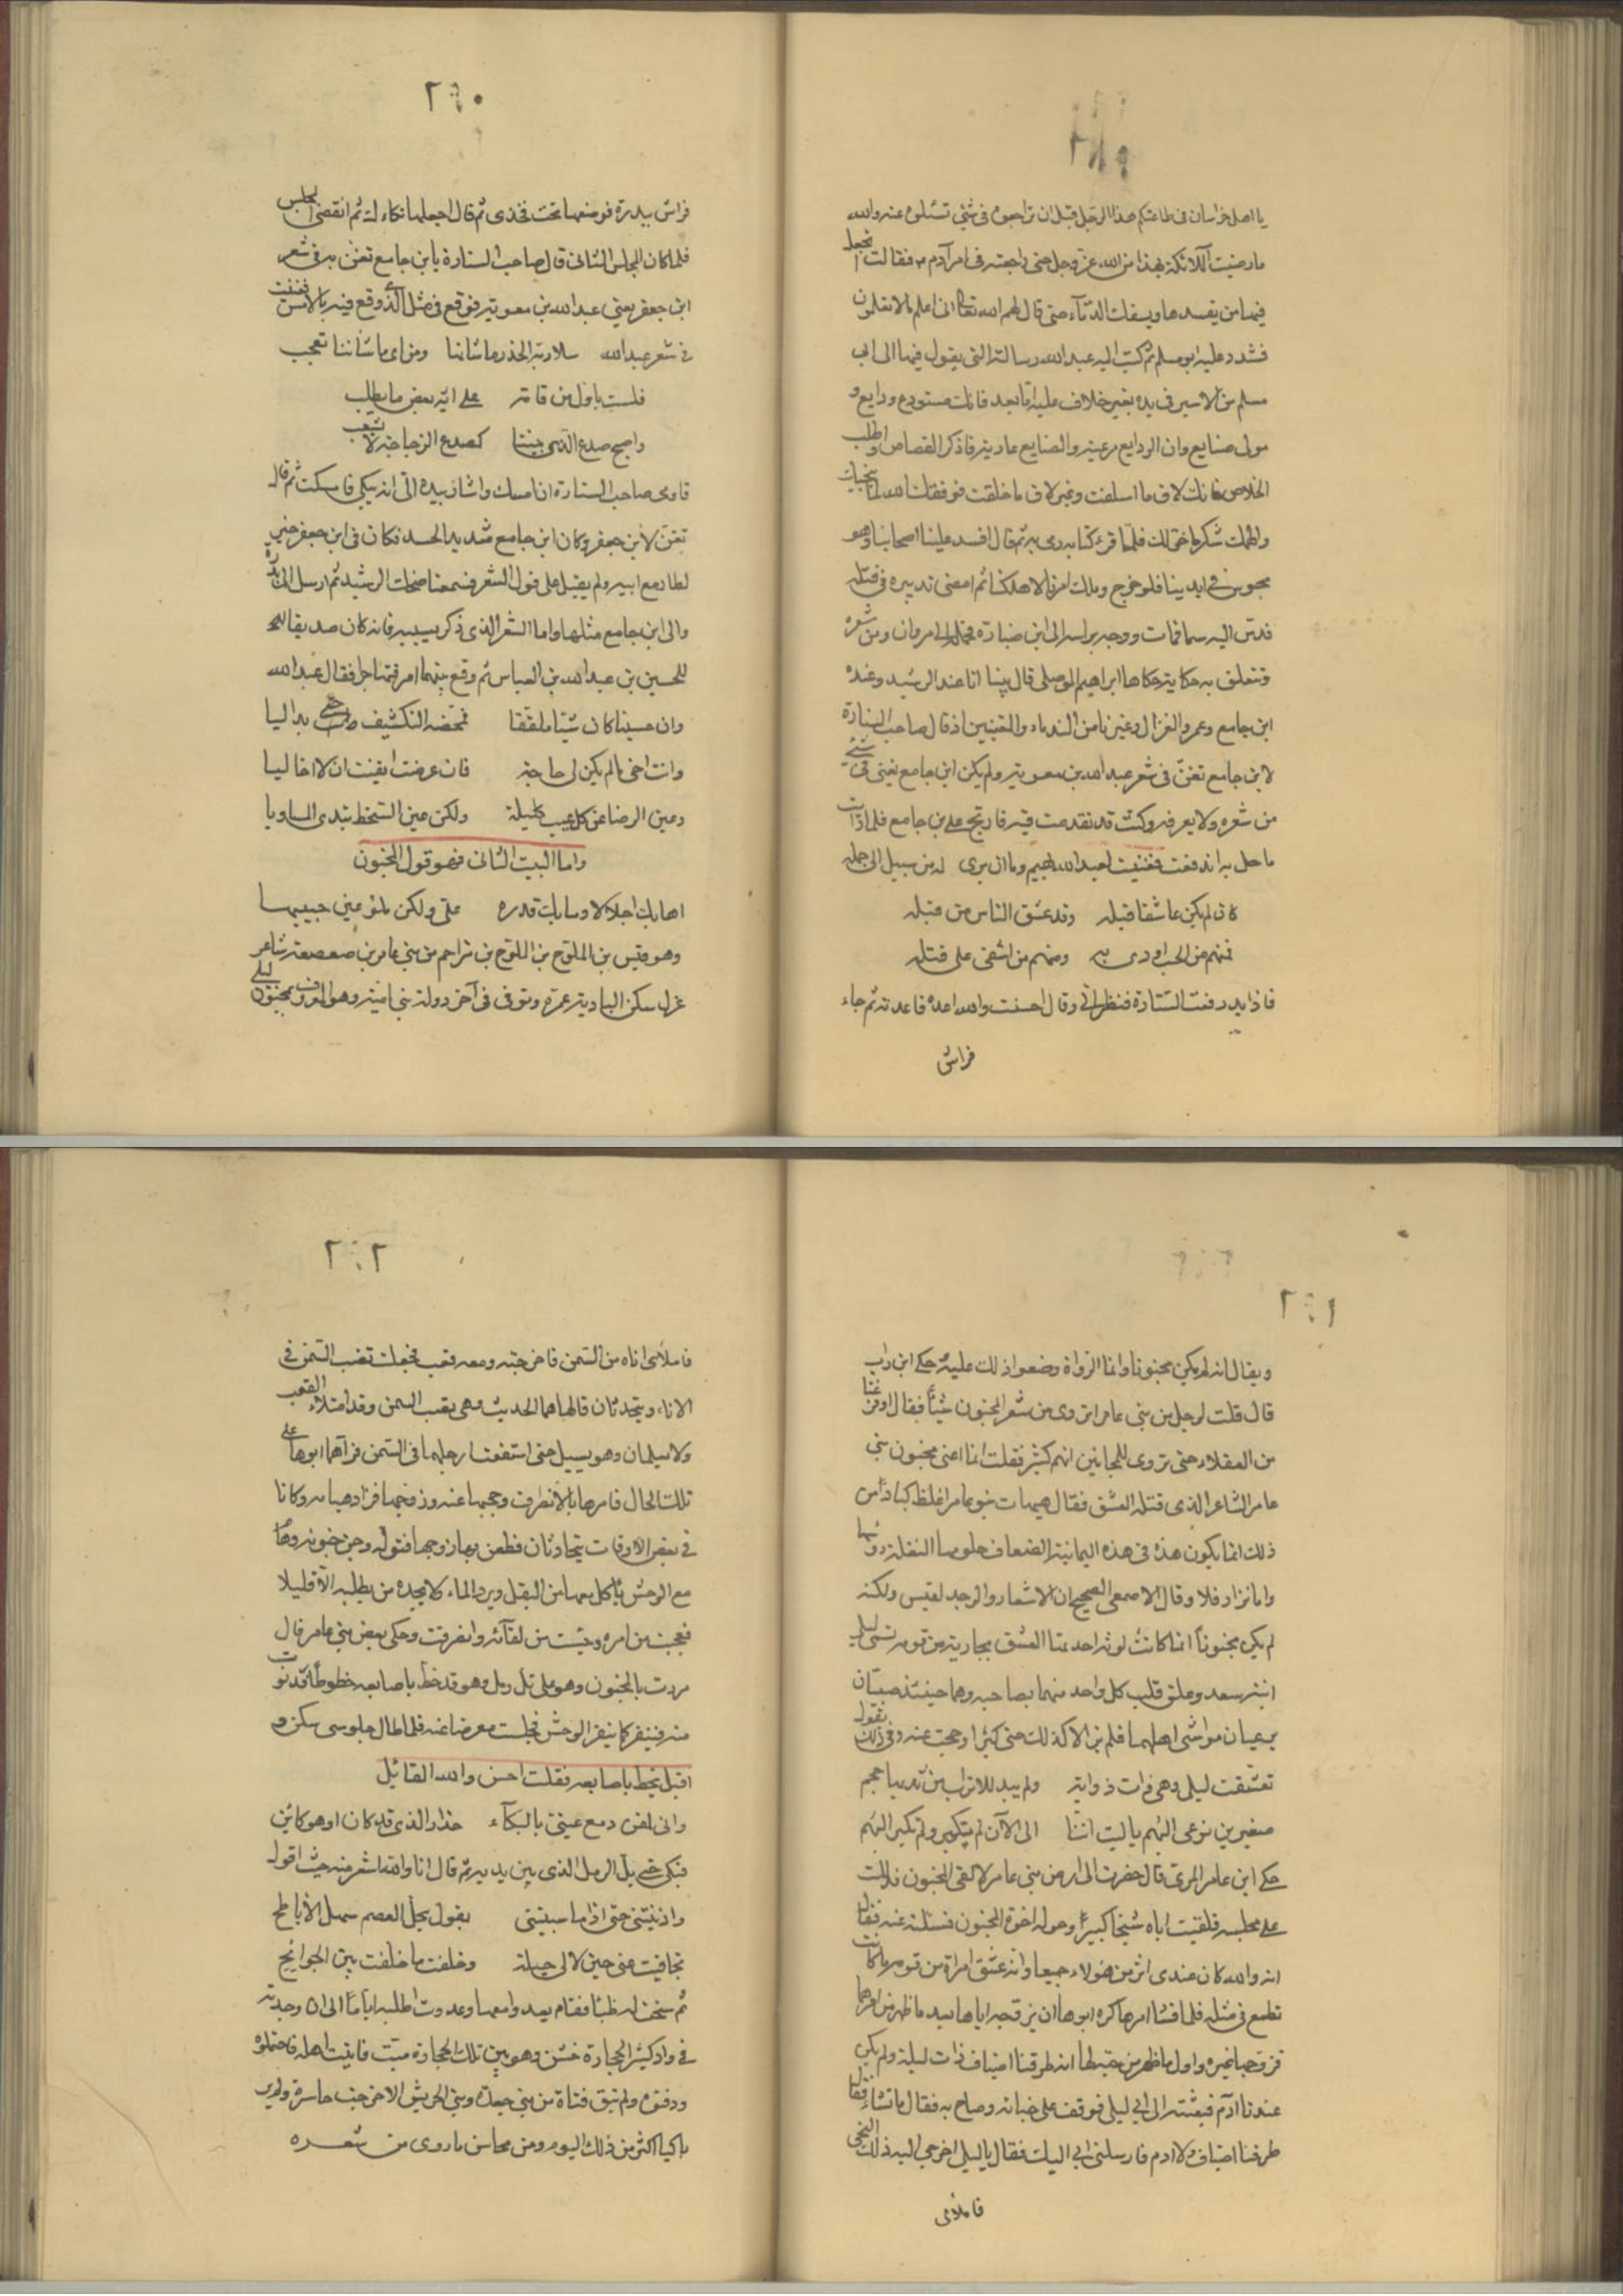 يا اهل خراسان فى طاعتكم هذا الرجل قبل ان تراجعوه فى شئ تسئلوه عنه والله
ما رضيت الملائكة بهذا من الله عز وجل حتى راجعته فى امر آدم م فقالت اتجعل
فيها من يفسد فيها ويسفك الدماء حتى قال لهم الله تعالى انى اعلم ما لا تعلمون
فشدد عليه ابو مسلم ثم كتب اليه عبد الله رسالته التى يقول فيها الى ابى
مسلم من الاسير فى يده بغير خلاف عليه اما بعد فانك مستودع ودايع و
مولى صنايع وان الودايع مرعية والصنايع عارية فاذكر القصاص واطلب
الخلاص فانك لاق ما اسلفت وغير لاق ما خلفت فوفقك الله لما ينجيك
والهمك شكر ما خولك فلما قرء كتابه رمى به ثم قال افسد علينا اصحابنا وهو
محبوس فى ايدينا فلو خرج وملك امرنا لاهلكنا ثم امضى تدبيره فى قتله
فدس اليه سما فمات ووجه براسه الى ابن ضبارة فحمله الى مروان ومن شعره
وتتعلق به حكاية حكاها ابراهيم الموصلى قال بينا انا عند الرشيد وعنده
ابن جامع وعمرو الغزال وغيرنا من الندماء والمغنين اذ قال صاحب الستارة
لابن جامع تغن فى شعر عبد الله بن معوية ولم يكن ابن جامع يغنى فى شئ
من شعره ولا يعرفه وكنت قد تقدمت فيه فارتج على بن جامع فلما رايت
ما حل به اندفعت فغنيت لعبد الله يهيم وما ان يرى له من سبيل الى جمله
كان لم يكن عاشقا قبله وقد عشق الناس من قبله
فمنهم من الحب اودى به ومنهم من اشفى على قتله
فاذا بيد رفعت الستارة فنظر الى وقال احسنت والله اعده فاعدته ثم جاء
فراش
٢٦٠
فراش ببدرة فوضعها تحت فخذى ثم قال اجعلها تكاء لك ثم انقضى المجلس
فلما كان المجلس الثانى قال صاحب الستارة يا بن جامع تغن به فى شعر
ابن جعفر يعنى عبد الله بن معوية فوقع فى مثل الذى وقع فيه بالامس فغنيت
فى شعر عبد الله سلا ربة الخدر ما شاننا ومن اى ما شاننا تعجب
فلست باول من فاته على اربه بعض ما يطلب
واصبح صدع الذى بيننا كصدع الزجاجة لا يشعب
فاومى صاحب الستارة ان امسك واشار بيده الى انه يبكى فامسكت ثم قال
تغن لابن جعفر وكان ابن جامع شديد الحسد فكان فى ابن جعفر خير
لطار مع ابيه ولم يقبل على قول الشعر فسمعنا ضحك الرشيد ثم ارسل الى ببدرة
والى ابن جامع مثلها واما الشعر الذى ذكر بسببه فانه كان صديقا
للحسين بن عبد الله بن العباس ثم وقع بينهما امر فتهاجرا فقال عبد الله
وان حسينا كان شيئا ملففا فمحضه التكشيف حتى بدا ليا
وانت اخى ما لم يكن لى حاجة فان عرضت ايقنت ان لا اخا ليا
وعين الرضا عن كل عيب كليلة ولكن عين السخط تبدى المساويا
واما البيت الثانى فهو قول المجنون
اهابك اجلالا وما بك قدرة على ولكن ملؤ عين حبيبها
وهو قيس بن الملوح بن مزاحم من بنى عامر بن صعصعة شاعر
غزل سكن البادية عمره وتوفى فى آخر دولة بنى امية وهو المعروف بمجنون ليلى
٢٦١
ويقال انه لم يكن مجنونا وانما الرواة وضعوا ذلك عليه حكى ابن داب
قال قلت لرجل من بنى عامر اتروى من شعر المجنون شيئا فقال اوفرغنا
من العقلاء حتى نروى للمجانين انهم كثير فقلت انما اعنى مجنون بنى
عامر الشاعر الذى قتله العشق فقال هيهات بنو عامر اغلظ كبادا من
ذلك انما يكون هذه فى هذه اليمانية الضعاف حلومها النغلة رؤسها
واما نزار فلا وقال الاصمعى الصحيح ان الاشعار والوجد لقيس ولكنه
لم يكن مجنونا انما كانت لوثة احدثها العشق بجارية من قومه تسمى ليلى
ابنة سعد وعلق قلب كل واحد منهما بصاحبه وهما حينئذ صبيان
يرعيان مواشى اهلهما فلم يزالا كذلك حتى كبرا وحجبت عنه وفى ذلك يقول
تعشقت ليلى وهى ذات ذوابة ولم يبد للاتراب من ثديها حجم
صغيرين نرعى البهم يا ليت اننا الى الآن لم نكبر ولم تكبر البهم
حكى ابن عامر المرى قال حضرت الى ارض بنى عامر لالقى المجنون فدللت
على مجلسه فلقيت اباه شيخا كبيرا وحوله اخوة المجنون فسئلته عنه فقال
انه والله كان عندى اثر من هولاء جميعا وانه عشق امراة من قومه ما كانت
تطمع فى مثله فلما فشا امرها كره ابوها ان يزوجه اياها بعد ما ظهر من امرهما
فزوجها غيره واول ما ظهر من حبه لها انه طرقنا اضياف ذات ليلة ولم يكن
عندنا ادم فبعثته الى ابى ليلى فوقف على خبائه وصاح به فقال ما تشاء فقال
طرقنا اضياف ولا ادم فارسلنى ابى اليك فقال يا ليلى اخرجى اليه ذلك النحى
فاملائى
٢٦٢
فاملائى اناه من السمن فاخرجته ومعه قعب فجعلت تصب السمن فى
الاناء ويتحدثان فالهاهما الحديث وهى تصب السمن وقد امتلاء القعب
ولا يعلمان وهو يسيل حتى استنقعت ارجلهما فى السمن فرآهما ابوها على
تلك الحال فامرها بالانصراف وحجبها عنه وزوجها فزاد هيامه وكانا
فى بعض الاوقات يتحادثان فظعن بها زوجها فتوله وجن جنونه وهام
مع الوحش ياكل معها من البقل ويرد الماء كلا يجده من يطلبه الا قليلا
فعجبت من امره ويئست من لقائه وانصرفت وحكى بعض بنى عامر قال
مررت بالمجنون وهو على تل رمل وهو قد خط باصابعه خطوطا فدنوت
منه فنفر كما ينفر الوحش فجلست معرضا عنه فلما طال جلوسى سكن و
اقبل يخط باصابعه فقلت احسن والله القائل
وانى لمفن دمع عينى بالبكاء حذار الذى قد كان او هو كائن
فبكى حتى بل الرمل الذى بين يديه ثم قال انا والله اشعر منه حيث اقول
وادنيتنى حتى اذا ما سبيتنى بقول يحل العصم سهل الاباطح
تجافيت عنى حين لا لى حيلة وخلفت ما خلفت بين الجوانح
ثم سنحت له ظباء فقام يعدو معها وعدوت اطلبه اياما الى ان وجدته
فى واد كثير الحجارة خشن وهو بين تلك الحجارة ميت فاتيت اهله فاحتملوه
ودفنوه ولم تبق فتاة من بنى جعدة وبنى الحريش الا خرجت حاسرة ولم ير
باكيا اكثر من ذلك اليوم ومن محاسن ما روى من شعره